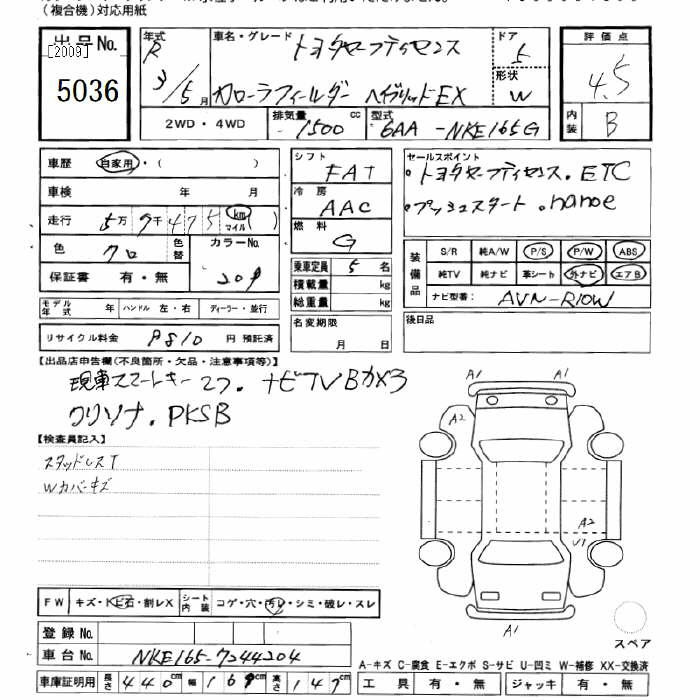 (複合機)対応用紙
出品No. [2009] 5036
年式 R 3/5月
車名・グレード トヨタセーフティセンス
カローラフィールダー ハイブリッドEX
ドア 5
形状 W
評価点 4.5
内装 B
2WD・4WD 排気量 1500 cc 型式 6AA-NKE165G
車歴 自家用・( )
車検 年 月
走行 5万9千475 km マイル ( )
色 クロ 色替 カラーNo. 209
保証書 有・無
モデル年式 年 ハンドル 左・右 ディーラー・並行
リサイクル料金 円 預託済
シフト FAT
冷房 AAC
燃料 G
乗車定員 5名
積載量 kg
総重量 kg
名変期限 月 日
セールスポイント
・トヨタセーフティセンス.ETC
・プッシュスタート.nanoe
装備品 S/R 純A/W P/S P/W ABS
純TV 純ナビ 革シート 外ナビ エアB
ナビ型番: AVN-R10W
後日品
【出品店申告欄(不良箇所・欠品・注意事項等)】
現車スマートキー2つ.ナビTVBカメラ
クリソナ.PKSB
【検査員記入】
スタッドレスT
Wカバーキズ
A1 A1
A2
A2
U1
A1
スペア
FW キズ・トビ石・割レX シート内装 コゲ・穴・汚レ・シミ・破レ・スレ
登録No.
車台No. NKE165-7244204
車庫証明用 長さ 440cm 幅 169cm 高さ 147cm
A-キズ C-腐食 E-エクボ S-サビ U-凹ミ W-補修 XX-交換済
工具 有・無 ジャッキ 有・無